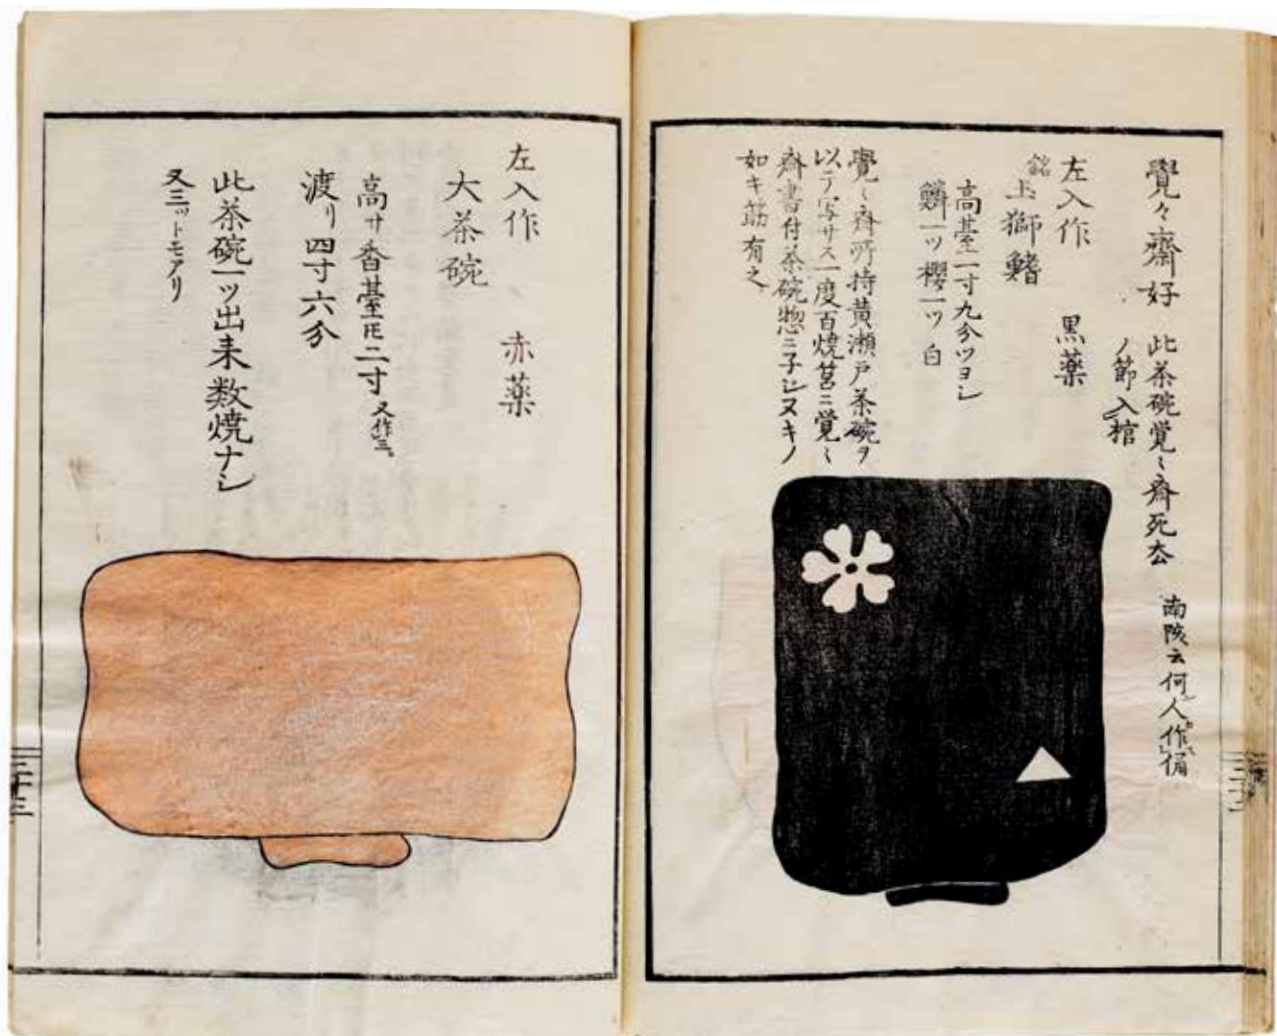 覺々齋好
此茶碗覚〻齊死去
ノ節入棺
南陔云何人作俑
左入作
黒薬
銘
玉獅鰭
高臺一寸九分ツヨシ
鱗一ツ櫻一ツ白
覺〻齊所持黄瀬戸茶碗ヲ
以テ写サス一度百焼筥ニ覚〻
齊書付茶碗惣ニ子シヌキノ
如キ筋有之
左入作
赤薬
大茶碗
高サ香臺圧二寸
渡リ四寸六分
此茶碗一ツ出来数焼ナシ
又三ットモアリ
二十三